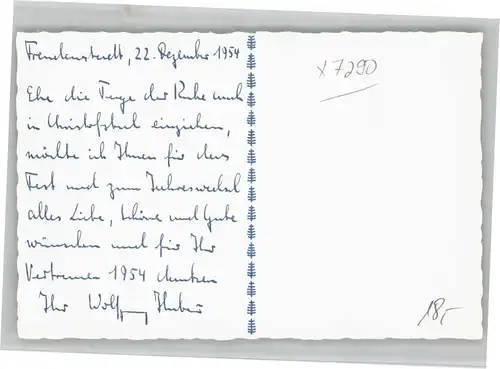 Freudenstadt, 22. Dezember 1954
Ehe die Tage der Ruhe auch
in Christofstal einziehen,
möchte ich Ihnen für das
Fest und zum Jahreswechsel
alles Liebe, Schöne und Gute
wünschen und für Ihr
Vertrauen 1954 danken
Ihr Wolfgang Huber
x 7290
18,-